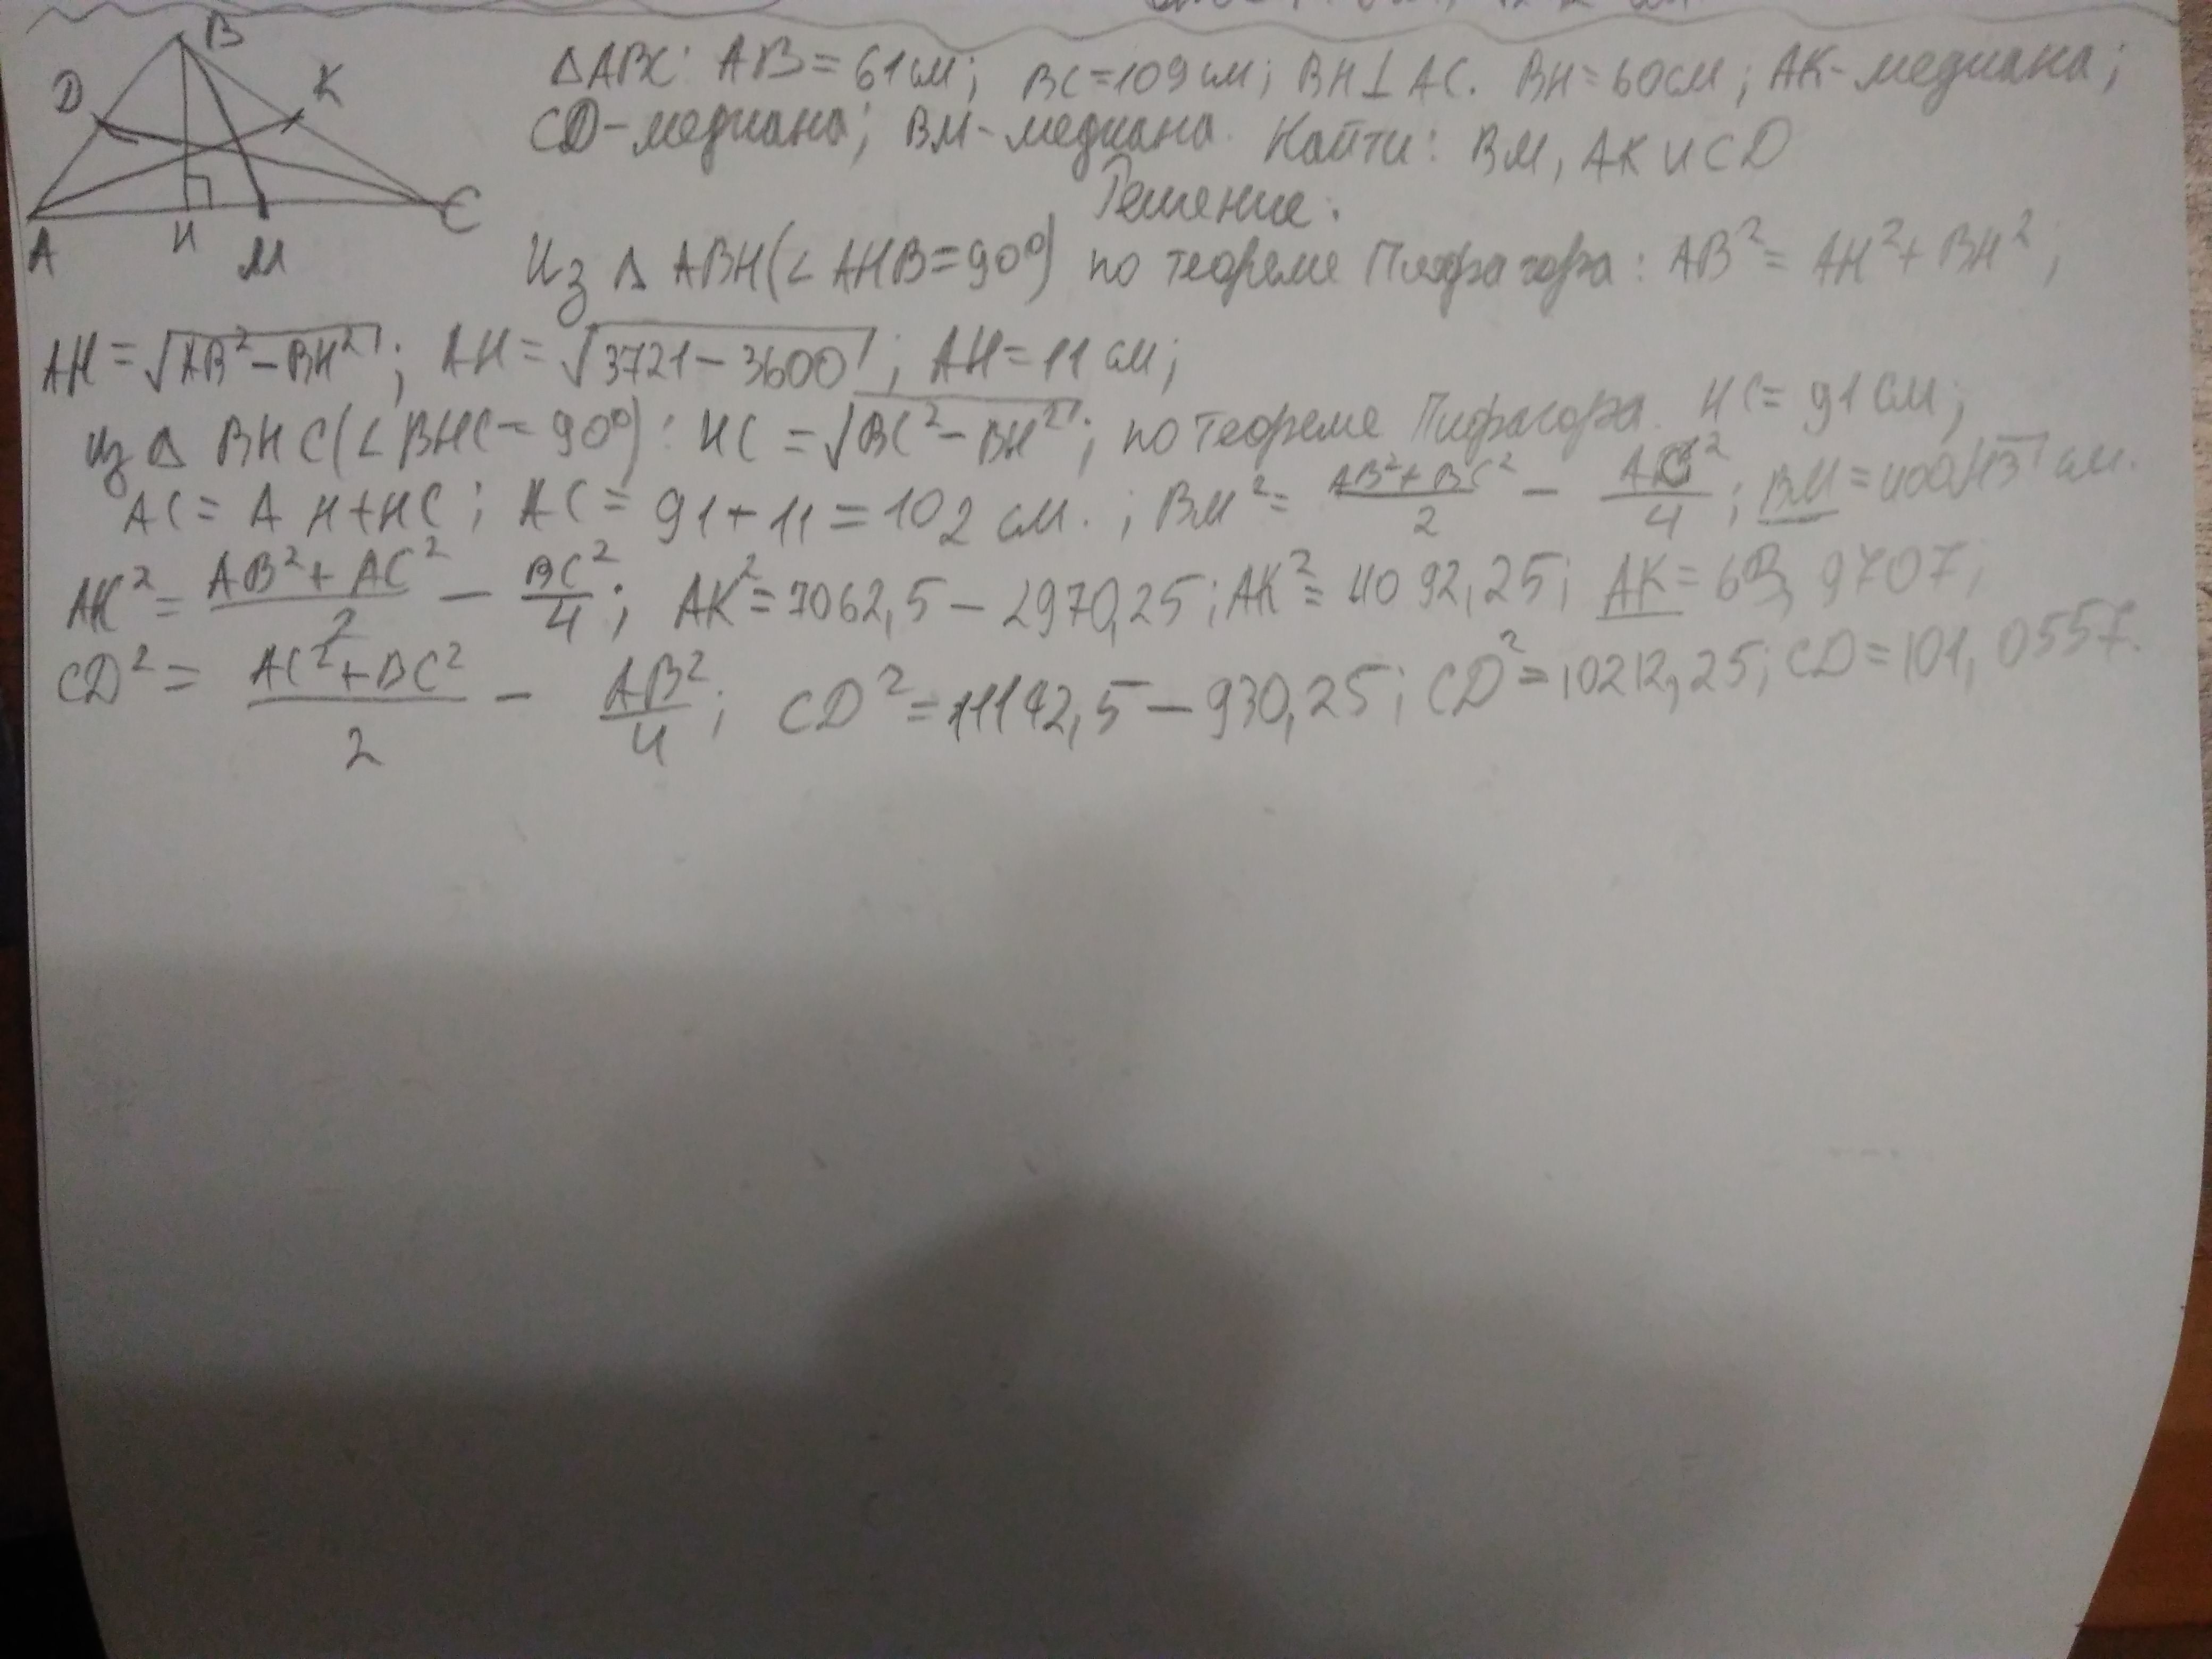 B
D
K
A
H
M
C
ΔABC: AB = 61 см; BC = 109 см; BH ⊥ AC. BH = 60 см; AK - медиана;
CD - медиана; BM - медиана. Найти: BM, AK и CD
Решение:
Из Δ ABH (∠ AHB = 90°) по теореме Пифагора: AB² = AH² + BH²;
AH = √(AB² − BH²); AH = √(3721 − 3600); AH = 11 см;
Из Δ BHC (∠ BHC = 90°): HC = √(BC² − BH²); по теореме Пифагора. HC = 91 см;
AC = AH + HC; AC = 91 + 11 = 102 см.; BM² = (AB² + BC²)/2 − AC²/4; BM = см.
AK² = (AB² + AC²)/2 − BC²/4; AK² = 7062,5 − 2970,25; AK² = 4092,25; AK = 63,9707;
CD² = (AC² + BC²)/2 − AB²/4; CD² = 11142,5 − 930,25; CD² = 10212,25; CD = 101,0557.